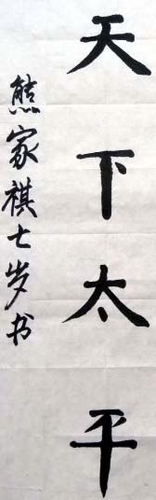 天下太平
熊家祺七岁书